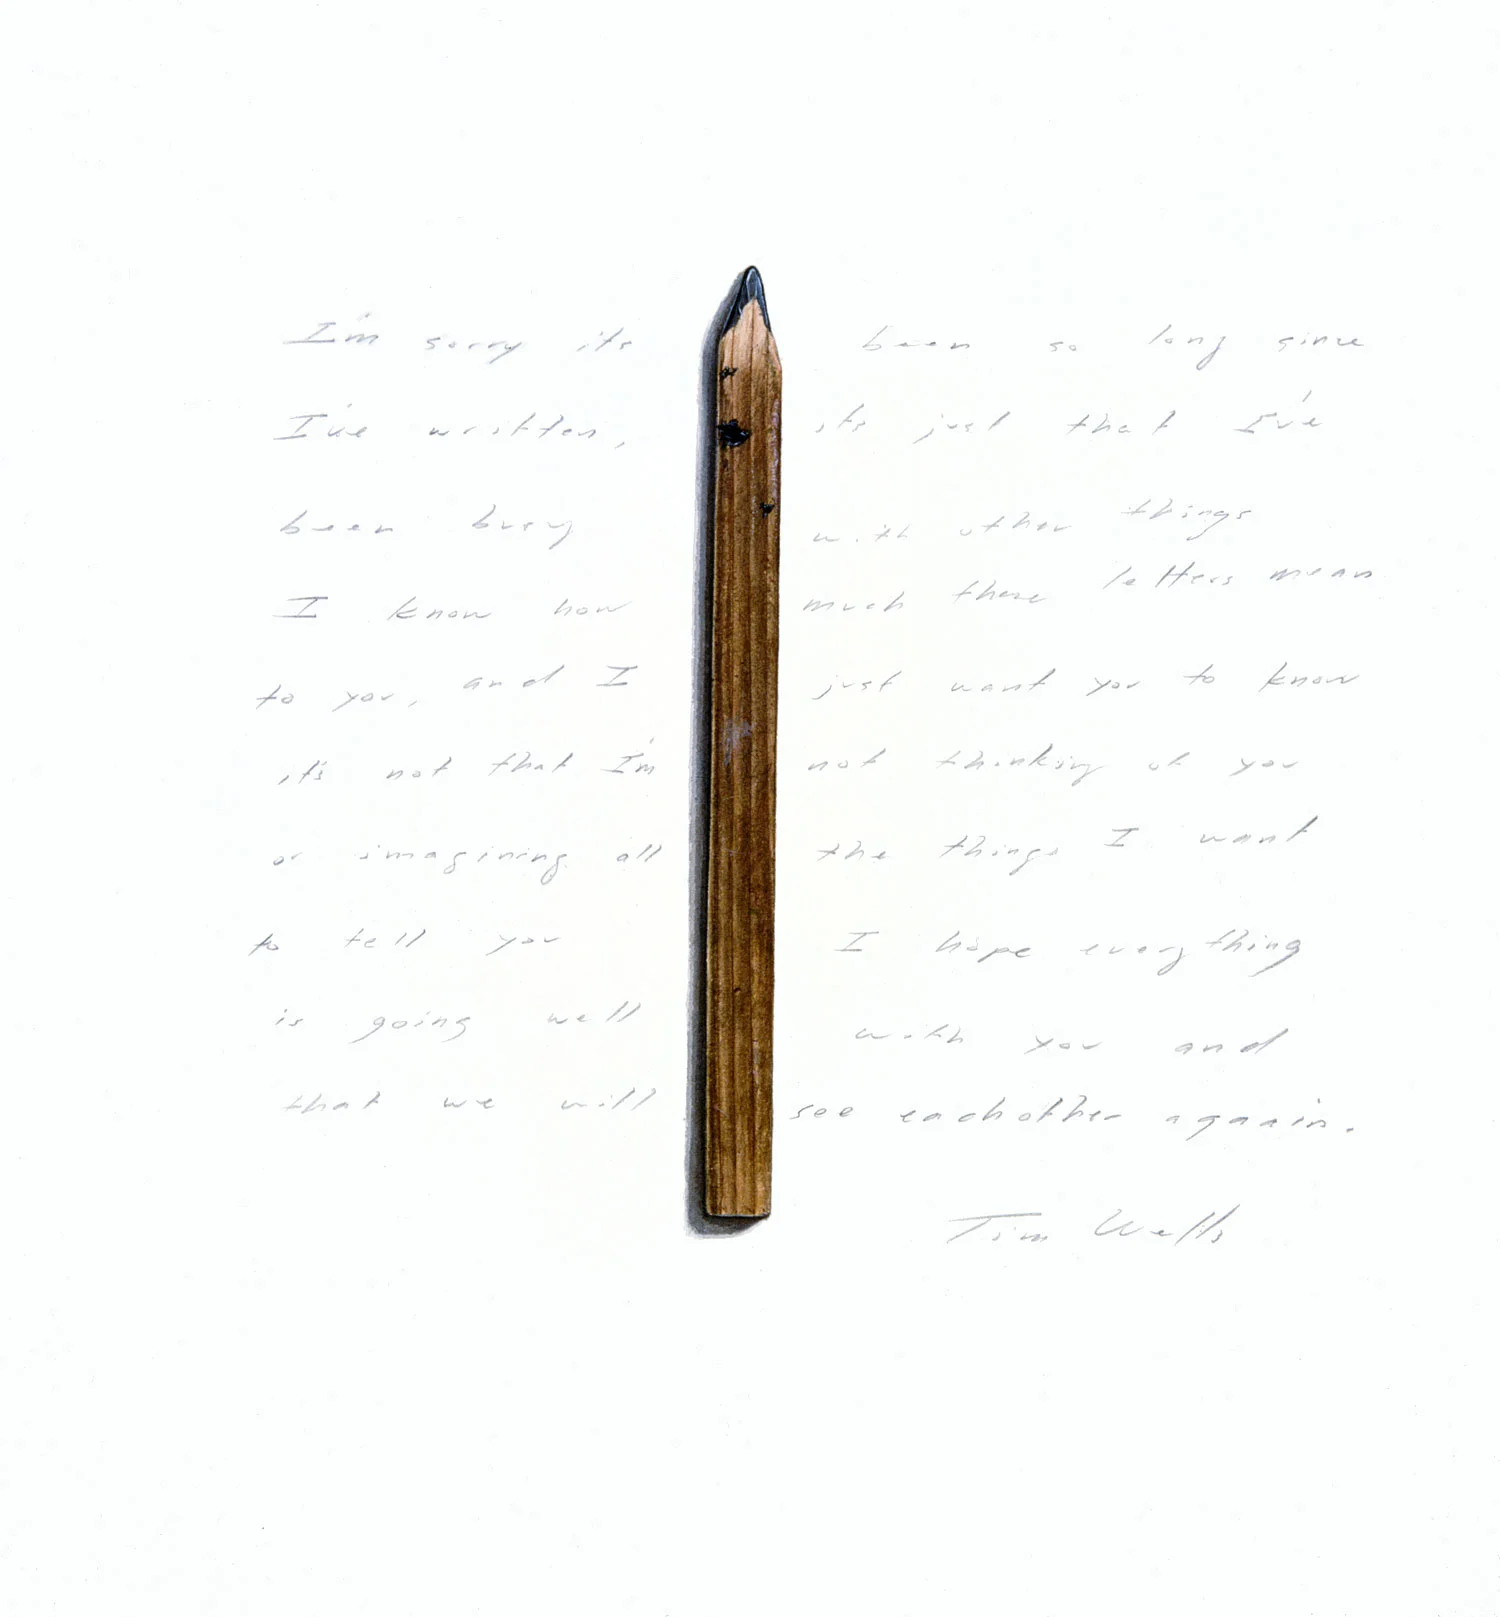 I'm sorry its been so long since
I've written, its just that I've
been busy with other things
I know how much these letters mean
to you, and I just want you to know
it's not that I'm not thinking of you
or imagining all the things I want
to tell you I hope everything
is going well with you and
that we will see eachother agaain.
Tim Wells